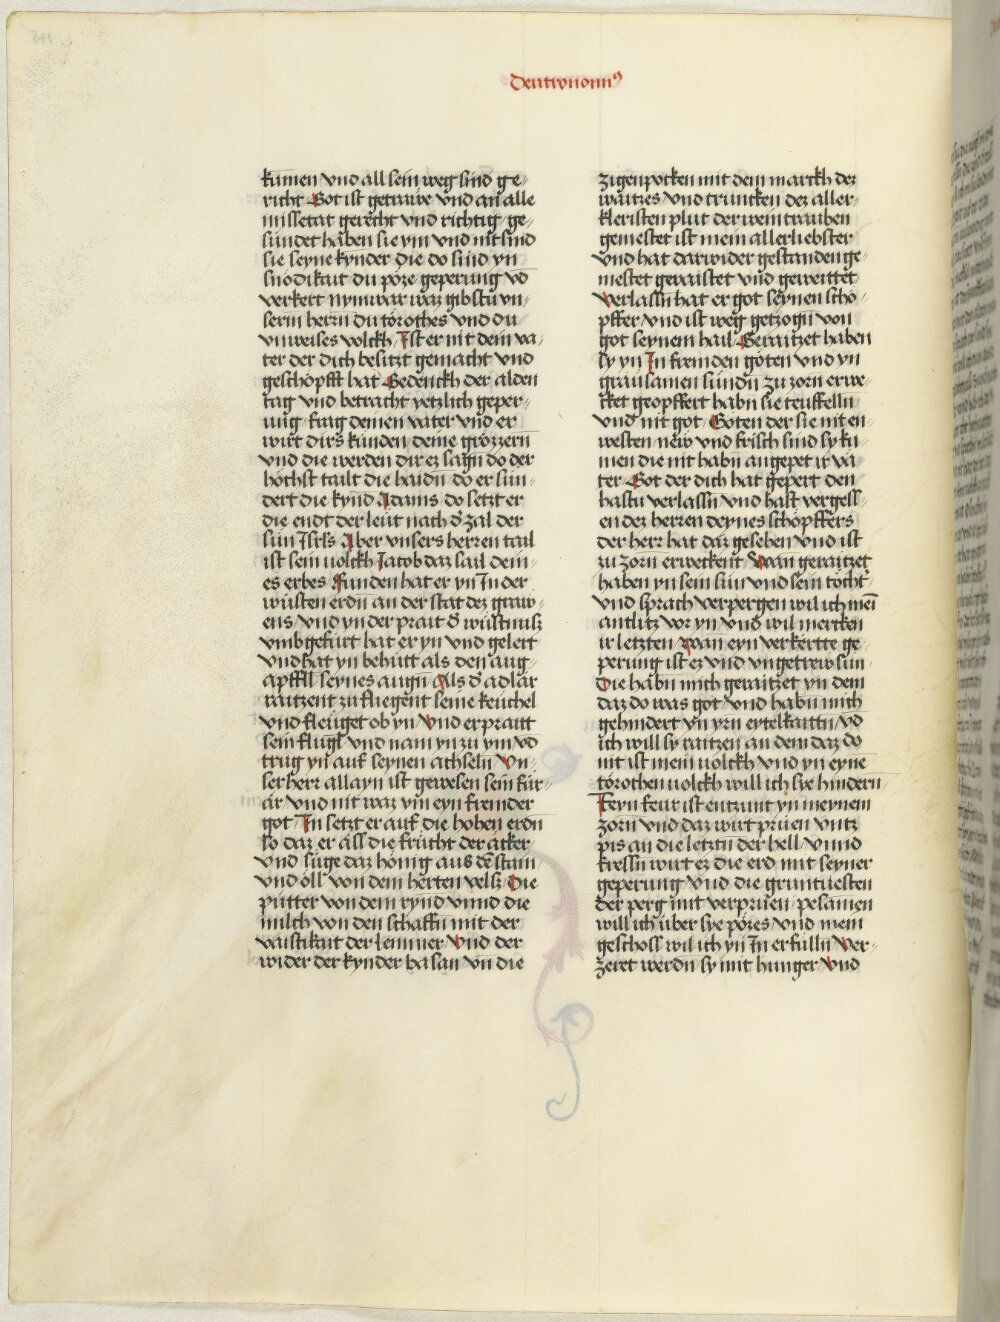 Deutronomi9
kumen vnd all sein weg sind ge⸗
richt Got ist getrawe vnd an alle
missetat gerecht vnd richtig ge⸗
sundet haben sie ym vnd nit sind
sie seyne kynder die do sind yn
snodikait du poze geperung vd
verkert nymwar waz gibstu vn⸗
serm herrn du torothes vnd du
vnweises volckh Ist er nit dein va⸗
ter der dich besitzt gemacht vnd
geschopfft hat Gedenckh der alden
tag vnd betracht yetzlich geper⸗
ung frag deinen vater vnd er
wirt dirs kunden deine grozzern
vnd die werden dir ez sagn do der
hochst tailt die haidn do er sun⸗
dert die kynd Adams do setzt er
die endt der leut nach d zal der
sun Isrls Aber vnsers herren tail
ist sein volckh Jacob daz sail dein⸗
es erbes Funden hat er yn In der
wusten erdn an der stat dez graw⸗
ens vnd yn der prait d wustnusz
vmbgefurt hat er yn vnd gelert
vnd hat yn behutt als den aug⸗
apffll seynes augn Als d adlar
raitzent zu fliegent seine keuchel
vnd fleuget ob yn Vnd erpraitt
sein flugl vnd nam yn zu ym vd
trug yn auf seynen achseln Vn⸗
ser herr allayn ist gewesen sein fur⸗
ar vnd nit waz ym eyn fremder
got In setzt er auf die hohen erdn
so daz er ass die frucht der acker⸗
vnd suge daz honig aus de stain
vnd oll von dem herten velsz Die
putter von dem rynd vnnd die
milch von den schaffn mit der
vaistikait der lemmer Vnd der
wider der kynder basan Vn die
zigenpocken mit dem marckh dez
waitzes vnd truncken dez aller⸗
kleristen plut der weintrauben
gemestet ist mein allerliebster
vnd hat darwider gestanden ge⸗
mestet gewaistet vnd geweittet
Verlassn hat er got seynen scho⸗
pffer vnd ist weg getzogn von
got seynem hail Geraitzet haben
sy yn In fremden goten vnd yn
grausamen sundn zu zorn erwe⸗
cket geopffert habn sie teuffelln
vnd nit got Goten der sie nit en⸗
westen new vnd frisch sind sy ku⸗
men die nit habn angepet ir va⸗
ter Got der dich hat gepert den
hastu verlassn vnd hast vergess⸗
en dez herren deynes schopffers
der herr hat daz gesehen vnd ist
zu zorn erweckent Wan geraitzet
haben yn sein sun vnd sein tocht
vnd sprach verpergen wil ich mei
antlitz vor yn vnd wil mercken
ir letzten wan eyn verkertte ge⸗
perung ist ez vnd vngetrew sun
Die habn mich geraitzet yn dem
daz do was got vnd habn mich
gehindert yn yrn eytelkaittn vd
ich will sy raitzen an dem daz do
nit ist mein volckh vnd yn eyne
torothen volckh will ich sye hindern
Feyn feur ist entzunt yn meynem
zorn vnd daz wirt prüen vntz
pis an die letztn der hell vnnd
fressn wirt ez die erd mit seyner
geperung vnd die gruntuesten
der perg mit verpruen pesamen
will ich uber sye pozes vnd mein
geschoss wil ich yn In erfulln Ver⸗
zeret werdn sy mit hunger Vnd